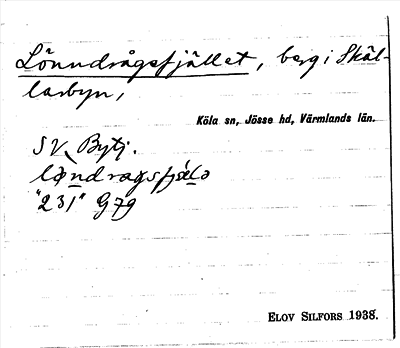 Lönndrågsfjället, berg i Skäl-
larbyn,
Köla sn, Jösse hd, Värmlands län.
SV Bytj.
"231" G79
ELOV SILFORS 1938.